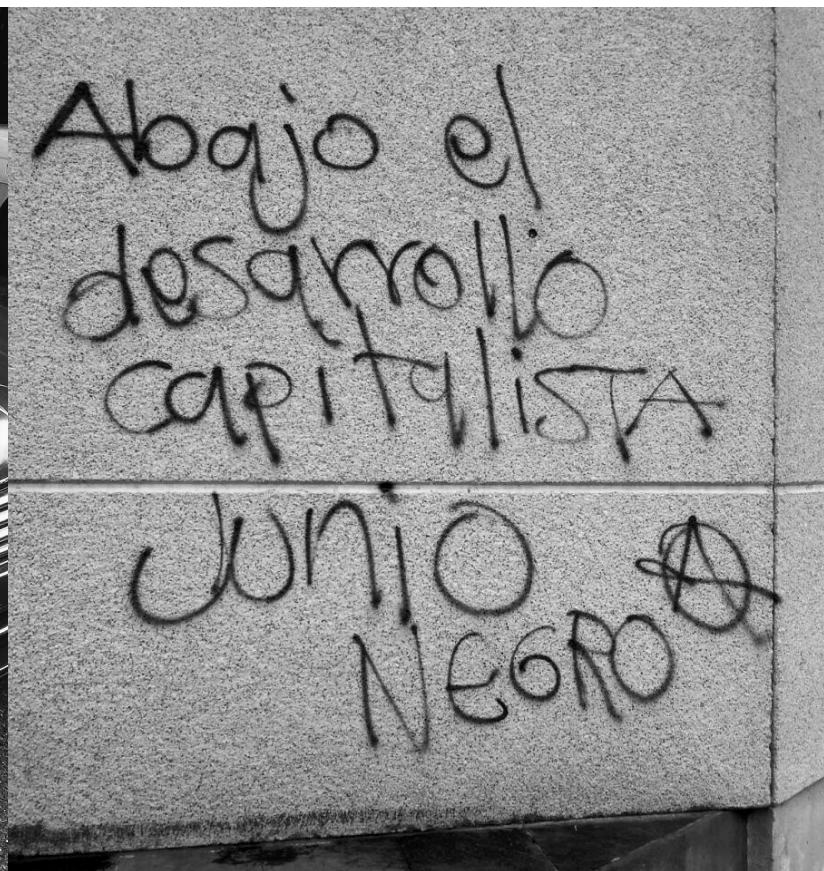 Abajo el
desarrollo
capitaliSTA
Junio
NEGRO Ⓐ